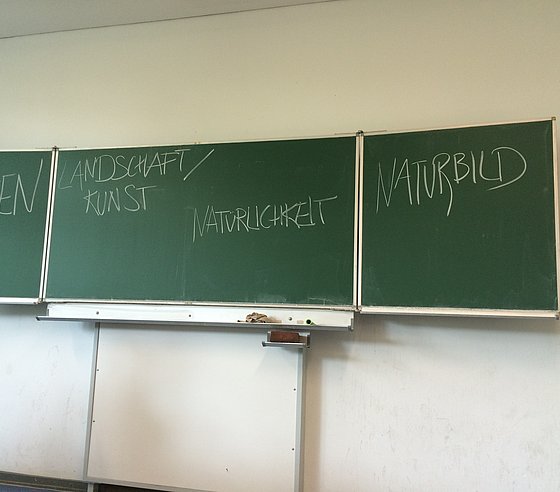 EN
LANDSCHAFT/
KUNST
NATURLICHKEIT
NATURBILD